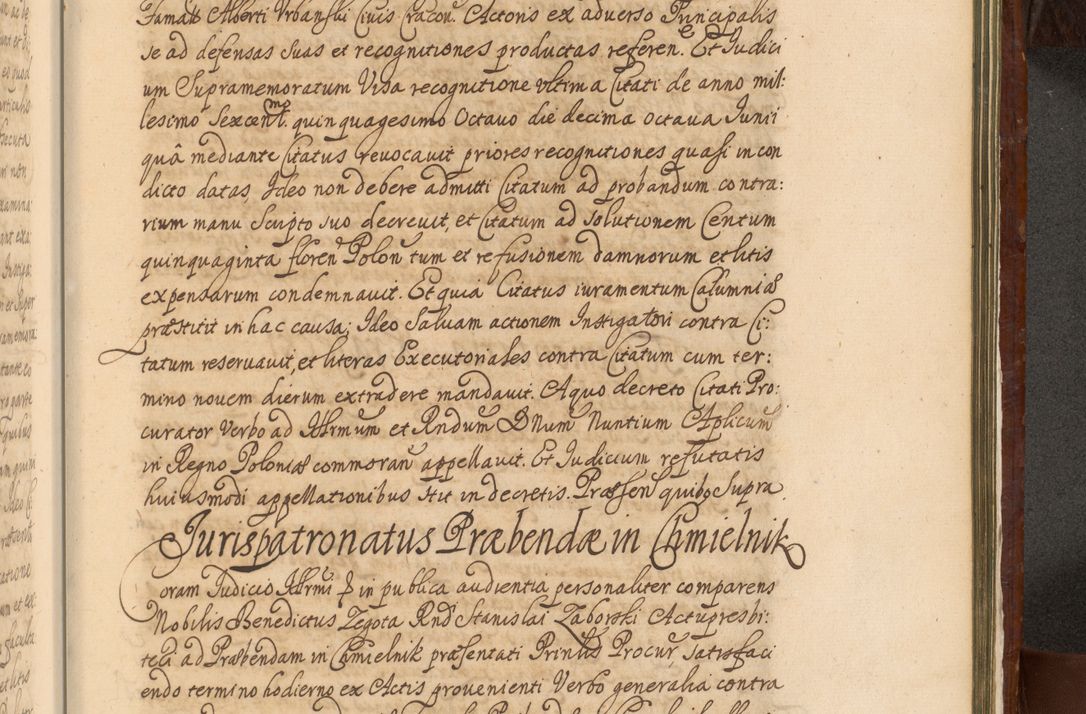 Famatt Alberti Vrbanski Civis Cracou. Actoris ex aduerso Principalis
se ad defensas suas et recognitiones productas referen. Et Iudici
um Supramemoratum Visa recognitione vltima Citati de anno mil:
lesimo Sexcentmo quinquagesimo Octauo die decima octaua Iunii
quâ mediante Citatus reuocauit priores recognitiones quasi in con
dicto datas, Ideo non debere admitti Citatum ad probandum contra:
rium manu Scripto suo decreuit, et Citatum ad solutionem Centum
quinquaginta floren Polon tum et refusionem damnorum et litis
expensarum condemnauit. Et quia Citatus iuramentum Calumniæ
præstitit in hac causa; Ideo Saluam actionem Instigatori contra Ci:
tatum reseruauit, et literas Executoriales contra Citatum cum ter:
mino nouem dierum extradere mandauit. A quo decreto Citati Pro:
curator Verbo ad Illrmum et Rndum D Num Nuntium Aplicum
in Regno Poloniæ commoran appellauit. Et Iudicium refutatis
huiusmodi appellationibus stit in decretis. Præsen quibo Supra
Iurispatronatus Præbendæ in Chmielnik
Coram Iudicio Illrmi P in publica audientia personaliter comparens
Nobilis Benedictus Zegota Rnd Stanislai Zaborski Actu presbi:
teri ad Præbendam in Chmielnik præsentati Prinlis Procur, satisfaci
endo termino hodierno ex Actis prouenienti Verbo generalia contra